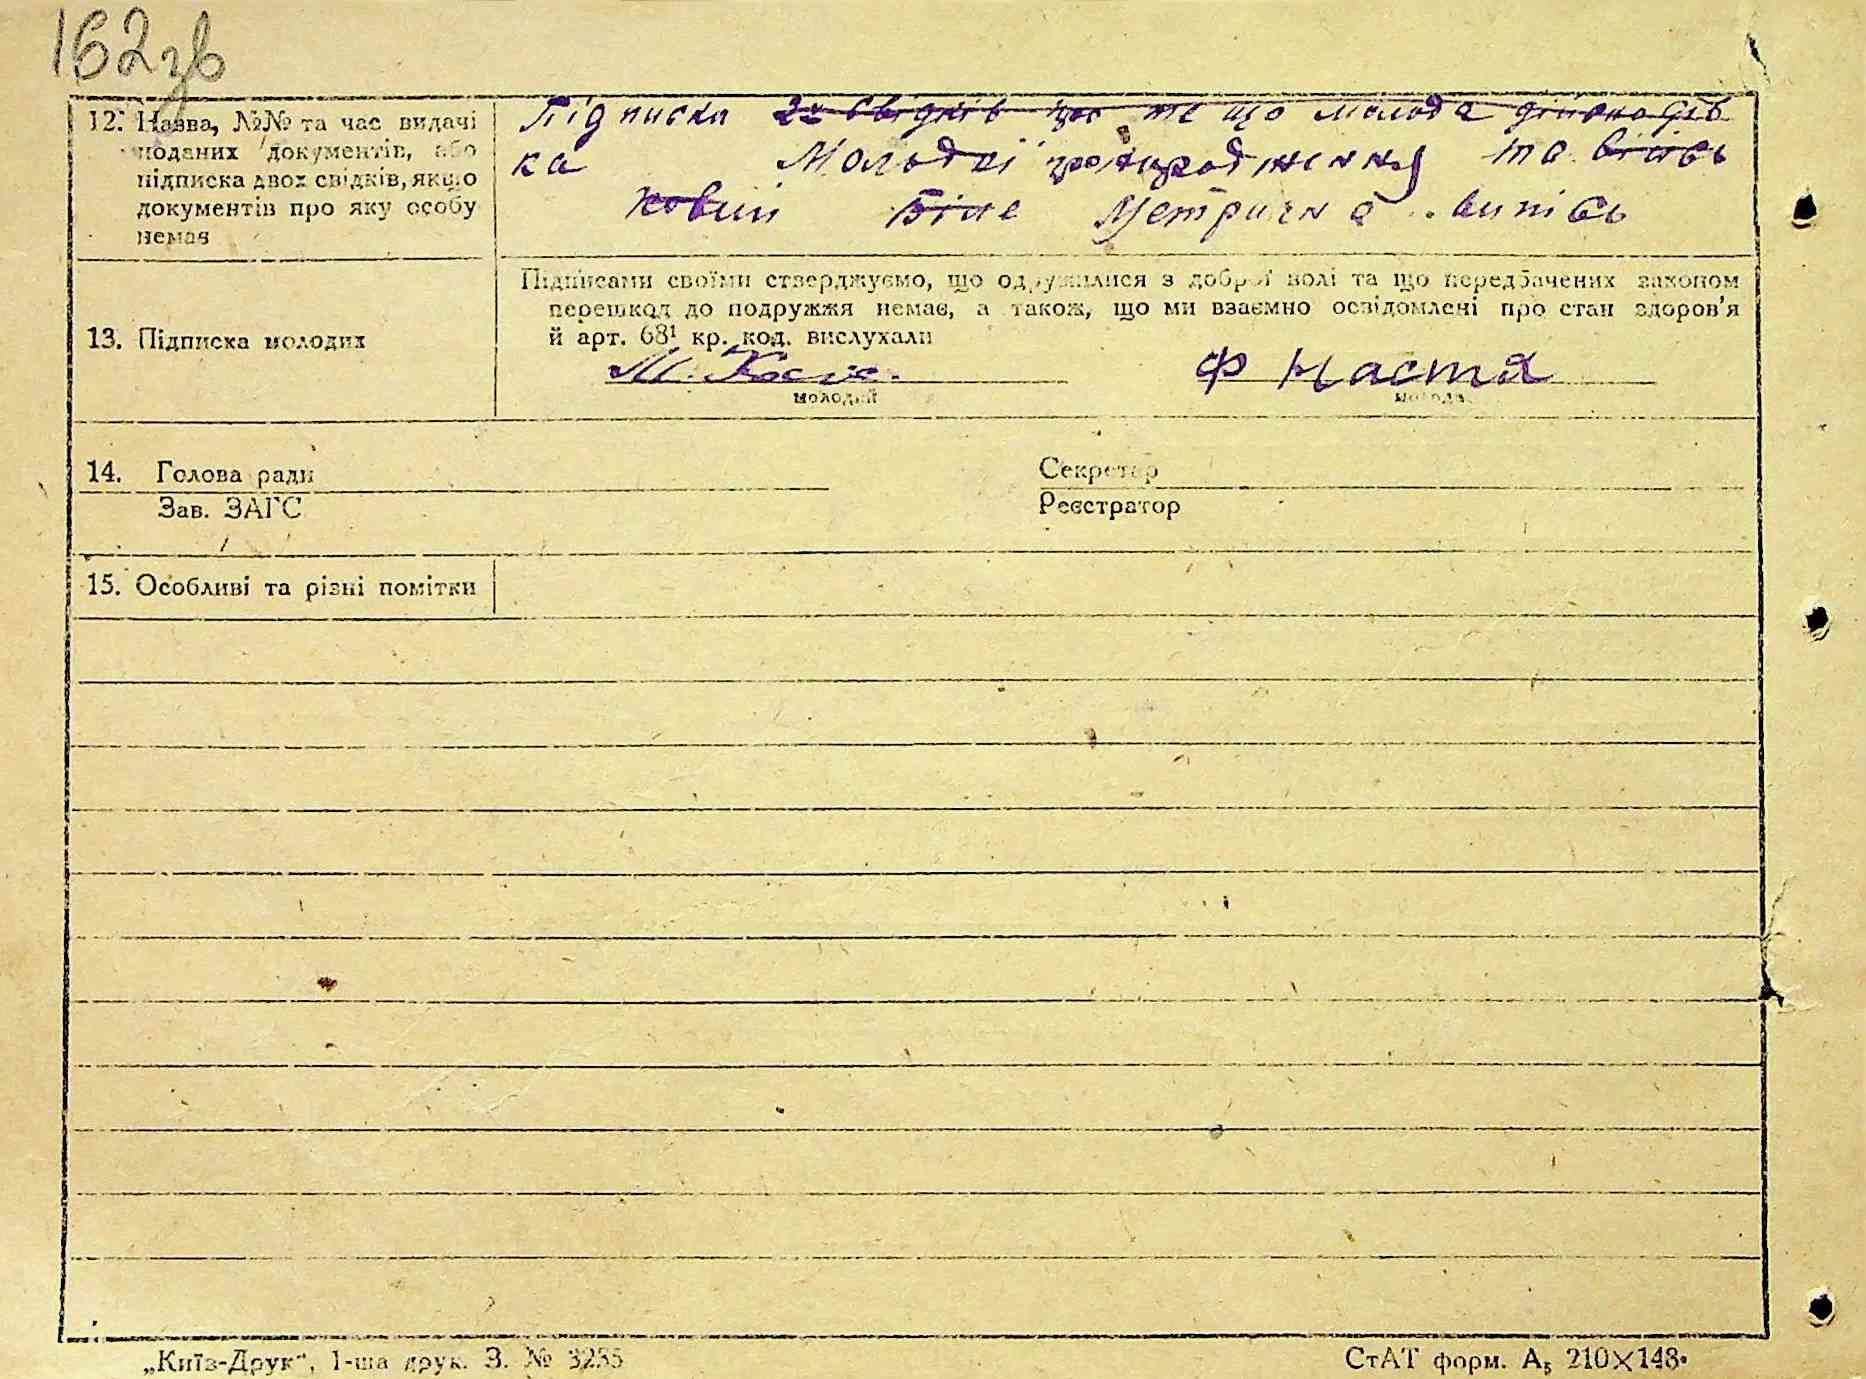 162зв
12. Назва, №№ та час видачі
поданих документів, або
підписка двох свідків, якщо
документів про яку особу
немає
Підписка 2х свідків про те що молода
ка Молодої та
Біле Метрична випісь
13. Підписка молодих
Підписами своїми стверджуємо, що одружилися з доброї волі та що передбачених законом
перешкод до подружжя немає, а також, що ми взаємно освідомлені про стан здоров'я
й арт. 68¹ кр. код. вислухали
М.
Ф Настя
молодий
молода
14. Голова ради
Секретар
Зав. ЗАГС
Реєстратор
15. Особливі та різні помітки
„Київ-Друк“, 1-ша друк. З. № 3235
СтАТ форм. А₅ 210×148.